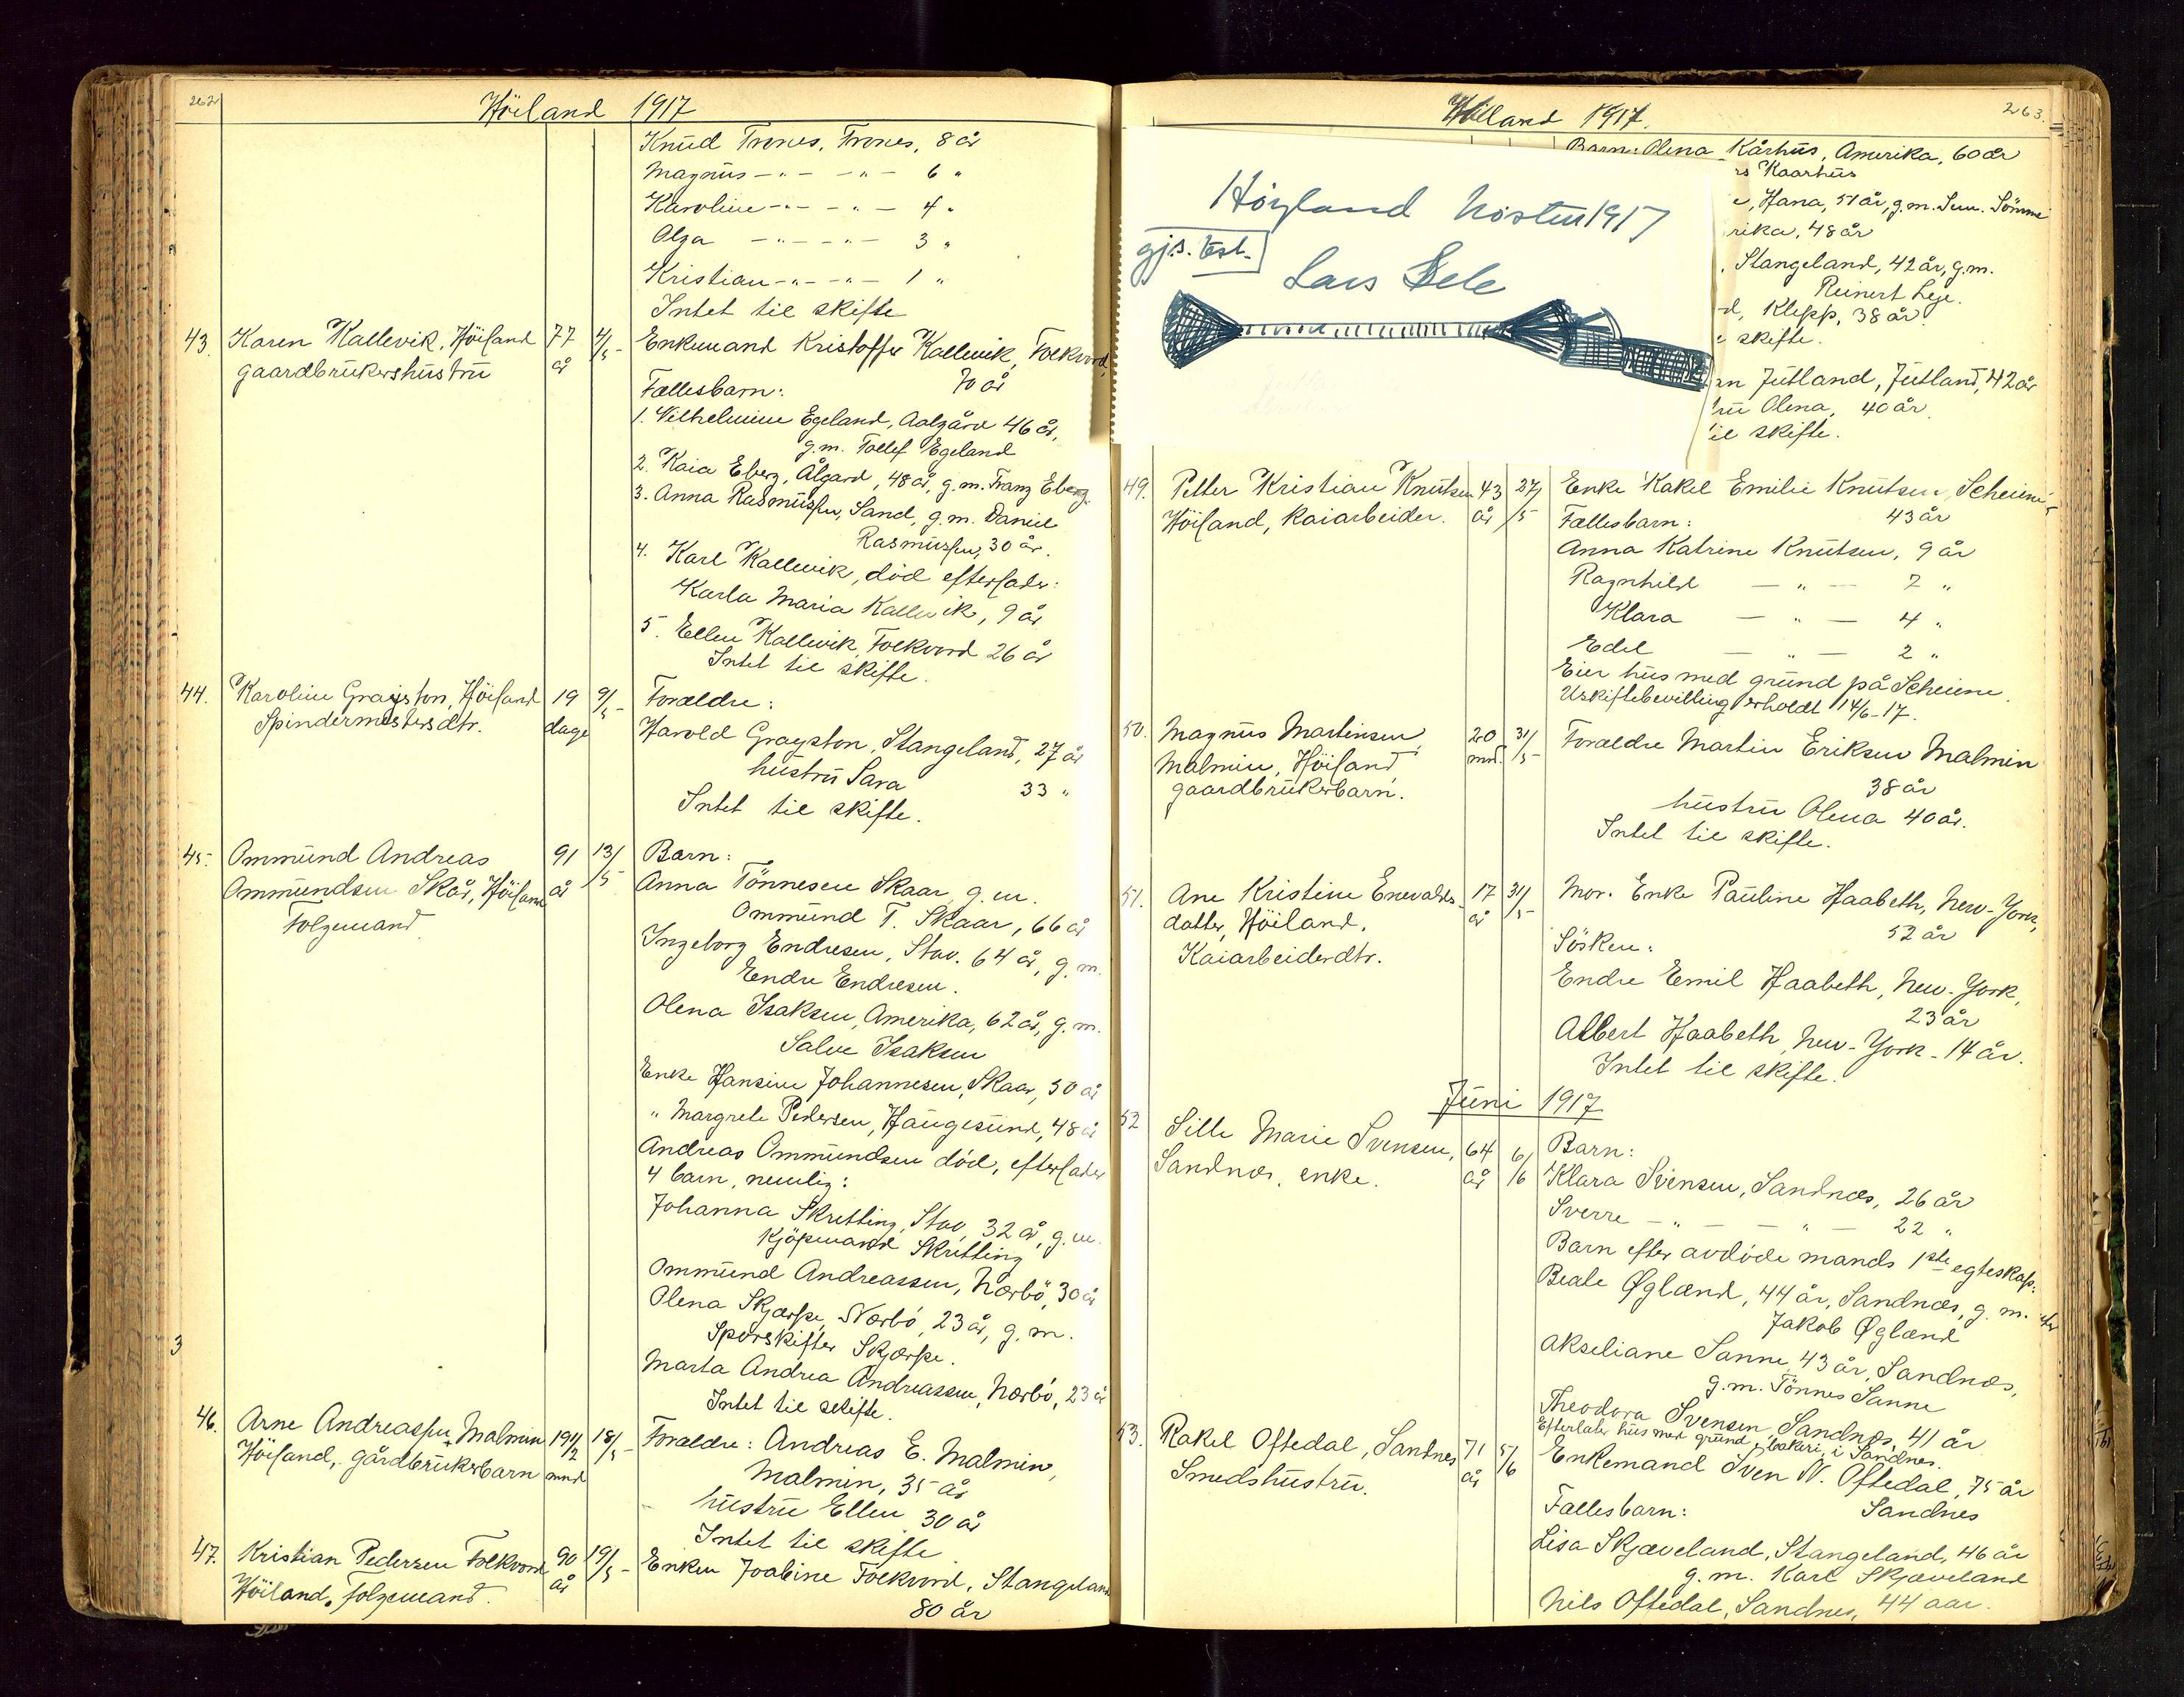 262
Høiland 1917
Knud Trones, Trones, 8 år
Magnus -"- -"- 6 "
Karoline -"- -"- 4 "
Olga -"- -"- 3 "
Kristian -"- -"- 1 "
Intet til skifte
43. Karen Kallevik, Høiland 77 4/5- Enkemand Kristoffer Kallevik, Folkvord,
gaardbrukershustru år 70 år
Fællesbarn:
1. Vilhelmine Egeland, Aalgård 46 år,
g.m. Tollef Egeland
2. Kaia Eberg, Ålgård, 48 år, g.m. Franz Eberg.
3. Anna Rasmussen, Sand, g.m. Daniel
Rasmussen, 30 år.
4. Karl Kallevik, död efterlader:
Karla Maria Kallevik, 9 år
5. Ellen Kallevik, Folkvord 26 år
Intet til skifte.
44. Karoline Grayston, Høiland 19 9/5- Forældre:
Spindermestersdtr. dage Harold Grayston, Stangeland, 27 år
hustru Sara 33 "
Intet til skifte.
45. Ommund Andreas 91 13/5 Barn:
Ommundsen Skår, Høiland år Anna Tönnesen Skaar g.m.
Folgemand Ommund T. Skaar, 66 år
Ingeborg Endresen, Stav. 64 år, g.m.
Endre Endresen.
Olena Isaksen, Amerika, 62 år, g.m.
Salve Isaksen
Enke Hansine Johannesen, Skaar, 50 år
" Margrete Pedersen, Haugesund, 48 år
Andreas Ommundsen död, efterlader
4 barn, nemlig:
Johanna Skretting, Stav. 32 år, g.m.
Kjöpmand Skretting
Ommund Andreassen, Nærbö, 30 år
Olena Skjærpe, Nærbö, 23 år, g.m.
Sporskifter Skjærpe.
Marta Andrea Andreassen, Nærbö, 23 år
Intet til skifte.
46. Arne Andreassen Malmin 19 1/2 18/5- Forældre: Andreas E. Malmin,
Høiland, gårdbrukerbarn mnd Malmin, 35 år
hustru Ellen 30 år
Intet til skifte
47. Kristian Pedersen Folkvord 90 19/5- Enken Joabine Folkvord, Stangeland
Høiland. Folgemand. år 80 år
3
Høiland 1917.
263.
Barn: Olena Kårhus, Amerika, 60 år
rs Kaarhus
e, Hana, 51 år, g.m. Sömme
rika, 48 år
, Stangeland, 42 år, g.m.
Reinert Leje.
d, Klepp, 38 år.
skifte.
an Jutland, Jutland, 42 år
ru Olena, 40 år.
il skifte.
Höyland hösten 1917
gjs. test.
Lars Sele
49. Petter Kristian Knutsen 43 27/5 Enke Rakel Emilie Knutsen, Scheiene
Høiland, kaiarbeider. år 43 år
Fællesbarn:
Anna Katrine Knutsen, 9 år
Ragnhild - " - 7 "
Klara - " - 4 "
Edel - " - 2 "
Eier hus med grund på Scheiene.
Uskiftebevilling erholdt 14/6-17.
50. Magnus Martinsen 20 31/5- Forældre Martin Eriksen Malmin
Malmin, Høiland mnd. 38 år
gaardbrukerbarn. hustru Olena 40 år.
Intet til skifte.
51. Ane Kristine Enevalds- 17 31/5- Mor. Enke Pauline Haabeth, New-York,
datter, Høiland. år 52 år
Kaiarbeiderdtr. Sösken:
Endre Emil Haabeth, New-York,
23 år
Albert Haabeth, New-York - 14 år.
Intet til skifte.
Juni 1917
52 Sille Marie Svensen, 64 6/6 Barn:
Sandnæs, enke. år Klara Svensen, Sandnæs, 26 år
Sverre - " - - " - 22 "
Barn efter avdöde mands 1ste egteskap:
Beate Øglænd, 44 år, Sandnæs, g.m.
Jakob Øglænd
Akseliane Sanne, 43 år, Sandnæs,
g.m. Tönnes Sanne
Theodora Svensen, Sandnæs, 41 år
Efterlater hus med grund, bakeri, i Sandnes.
53. Rakel Oftedal, Sandnes 71 5/6 Enkemand Sven N. Oftedal, 75 år
Smedshustru. år Sandnes
Fællesbarn:
Lisa Skjæveland, Stangeland, 46 år
g.m. Karl Skjæveland
Nils Oftedal, Sandnes, 44 aar.